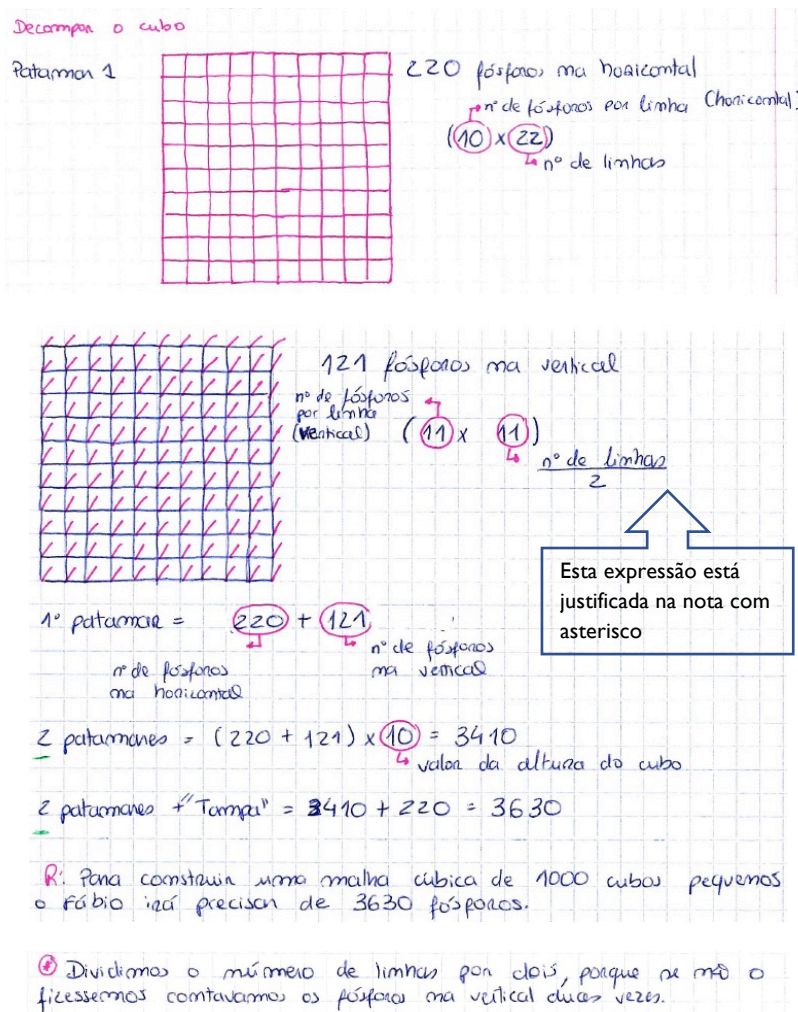 Decompor o cubo
Patamar 1
220 fósforos na horizontal
nº de fósforos por linha (horizontal)
(10 x 22)
nº de linhas
121 fósforos na vertical
nº de fósforos
por linha
(vertical)
(11 x 11)
nº de linhas
2
Esta expressão está
justificada na nota com
asterisco
1º patamar = 220 + 121
nº de fósforos
na horizontal
nº de fósforos
na vertical
2 patamares = (220 + 121) x 10 = 3410
valor da altura do cubo
2 patamares + "Tampa" = 3410 + 220 = 3630
R: Para construir uma malha cúbica de 1000 cubos pequenos
o Fábio irá precisar de 3630 fósforos.
* Dividimos o número de linhas por dois, porque se não o
fizessemos contavamos os fósforos na vertical duas vezes.